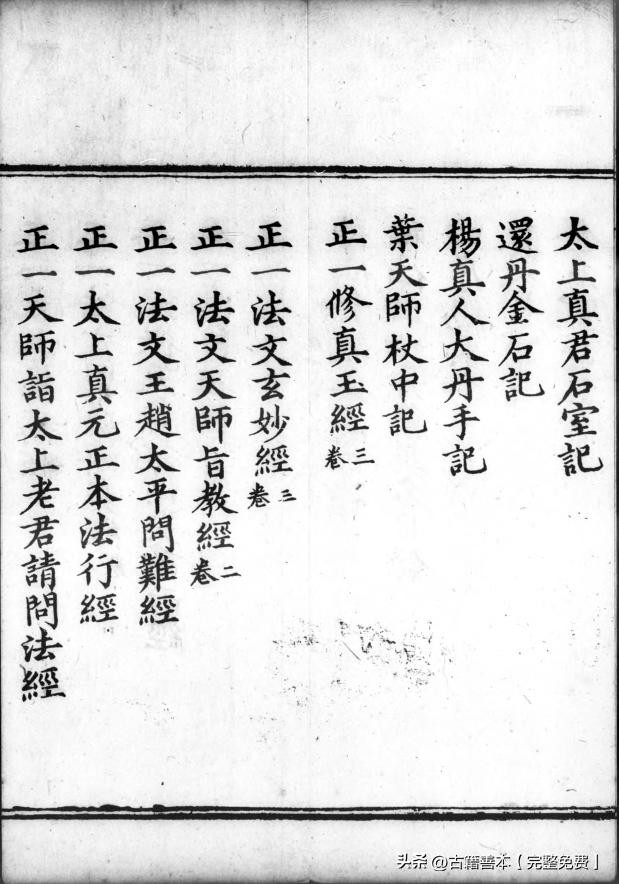 太上真君石室記
還丹金石記
楊真人大丹手記
葉天師杖中記
正一修真玉經三卷
正一法文玄妙經三卷
正一法文天師旨教經二卷
正一法文王趙太平問難經
正一太上真元正本法行經
正一天師詣太上老君請問法經
头条 @古籍善本【完整免费】